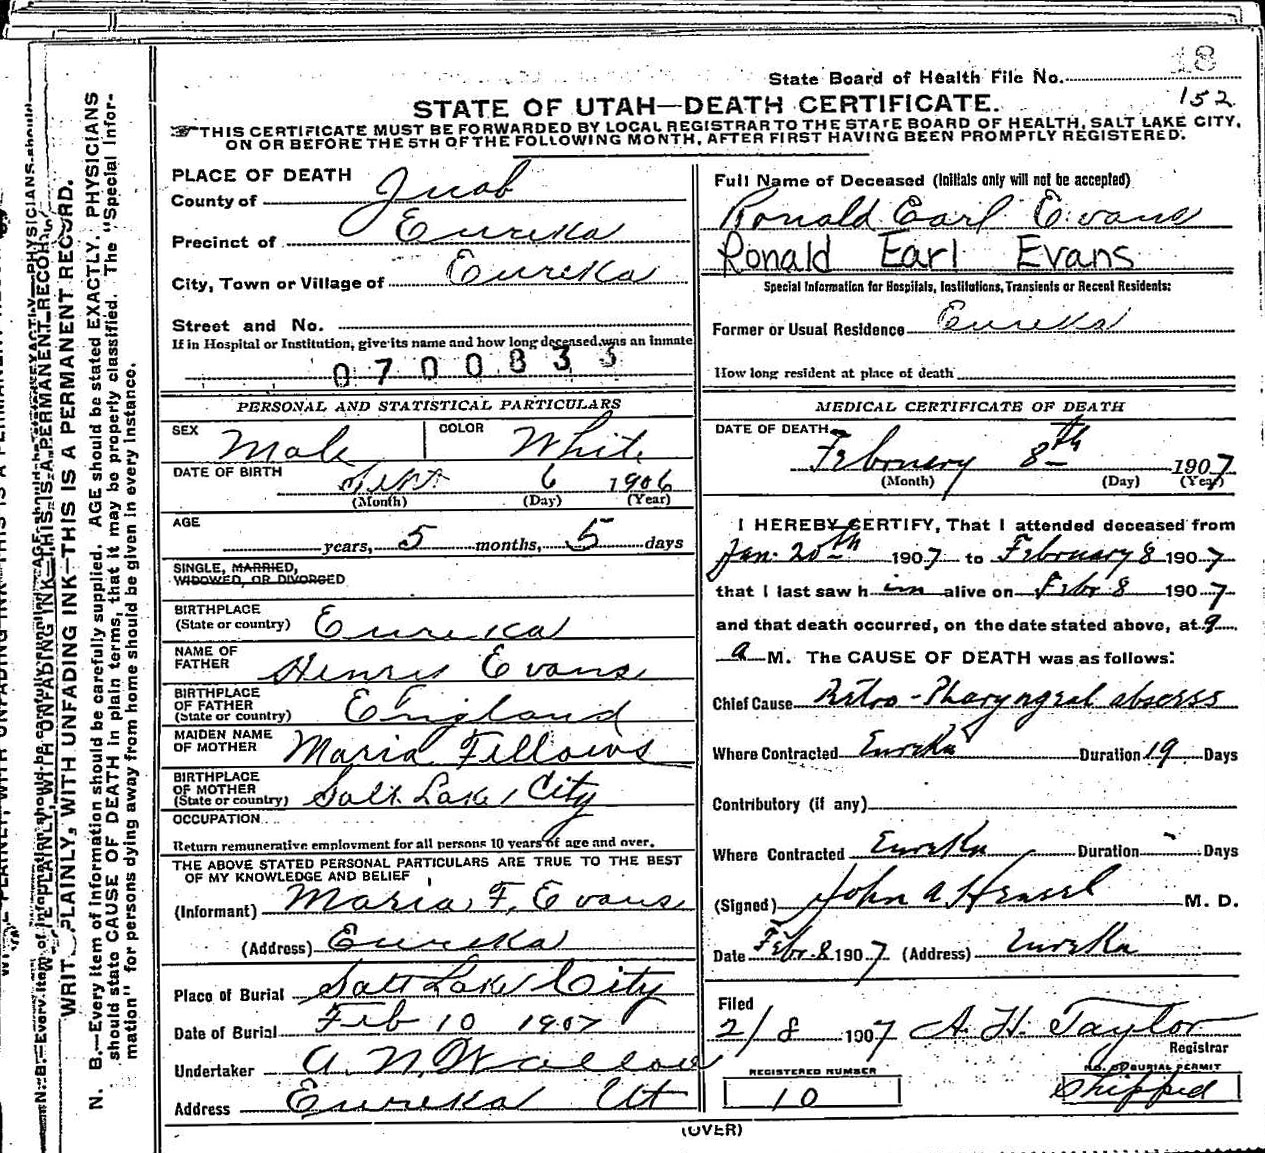 18
State Board of Health File No.
152
STATE OF UTAH—DEATH CERTIFICATE.
THIS CERTIFICATE MUST BE FORWARDED BY LOCAL REGISTRAR TO THE STATE BOARD OF HEALTH, SALT LAKE CITY,
ON OR BEFORE THE 5TH OF THE FOLLOWING MONTH, AFTER FIRST HAVING BEEN PROMPTLY REGISTERED.
PLACE OF DEATH
County of Juab
Precinct of Eureka
City, Town or Village of Eureka
Street and No.
If in Hospital or Institution, give its name and how long deceased was an Inmate
0700833
Full Name of Deceased (Initials only will not be accepted)
Ronald Earl Evans
Ronald Earl Evans
Special Information for Hospitals, Institutions, Transients or Recent Residents:
Former or Usual Residence Eureka
How long resident at place of death
PERSONAL AND STATISTICAL PARTICULARS
SEX Male COLOR White
DATE OF BIRTH Sept 6 1906
(Month) (Day) (Year)
AGE
years, 5 months, 5 days
SINGLE, MARRIED,
WIDOWED, OR DIVORCED
BIRTHPLACE
(State or country) Eureka
NAME OF
FATHER Henry Evans
BIRTHPLACE
OF FATHER
(State or country) England
MAIDEN NAME
OF MOTHER Maria Fellows
BIRTHPLACE
OF MOTHER
(State or country) Salt Lake City
OCCUPATION
Return remunerative employment for all persons 10 years of age and over.
THE ABOVE STATED PERSONAL PARTICULARS ARE TRUE TO THE BEST
OF MY KNOWLEDGE AND BELIEF
(Informant) Maria F. Evans
(Address) Eureka
Place of Burial Salt Lake City
Date of Burial Feb 10 1907
Undertaker A. N. Wallace
Address Eureka Ut
MEDICAL CERTIFICATE OF DEATH
DATE OF DEATH
February 8th 1907
(Month) (Day) (Year)
I HEREBY CERTIFY, That I attended deceased from
Jan. 20th 1907 to February 8 1907
that I last saw him alive on Febr 8 1907
and that death occurred, on the date stated above, at 9
a M. The CAUSE OF DEATH was as follows:
Chief Cause Retro-Pharyngeal abscess
Where Contracted Eureka Duration 19 Days
Contributory (if any)
Where Contracted Eureka Duration Days
(Signed) John A Hensel M. D.
Date Febr. 8 1907 (Address) Eureka
Filed
2/8 1907 A. H. Taylor
Registrar
REGISTERED NUMBER
10
NO. OF BURIAL PERMIT
Shipped
(OVER)
WRITE PLAINLY, WITH UNFADING INK—THIS IS A PERMANENT RECORD.
N. B.—Every item of Information should be carefully supplied. AGE should be stated EXACTLY. PHYSICIANS
should state CAUSE OF DEATH in plain terms, that it may be properly classified. The "Special Infor-
mation" for persons dying away from home should be given in every instance.